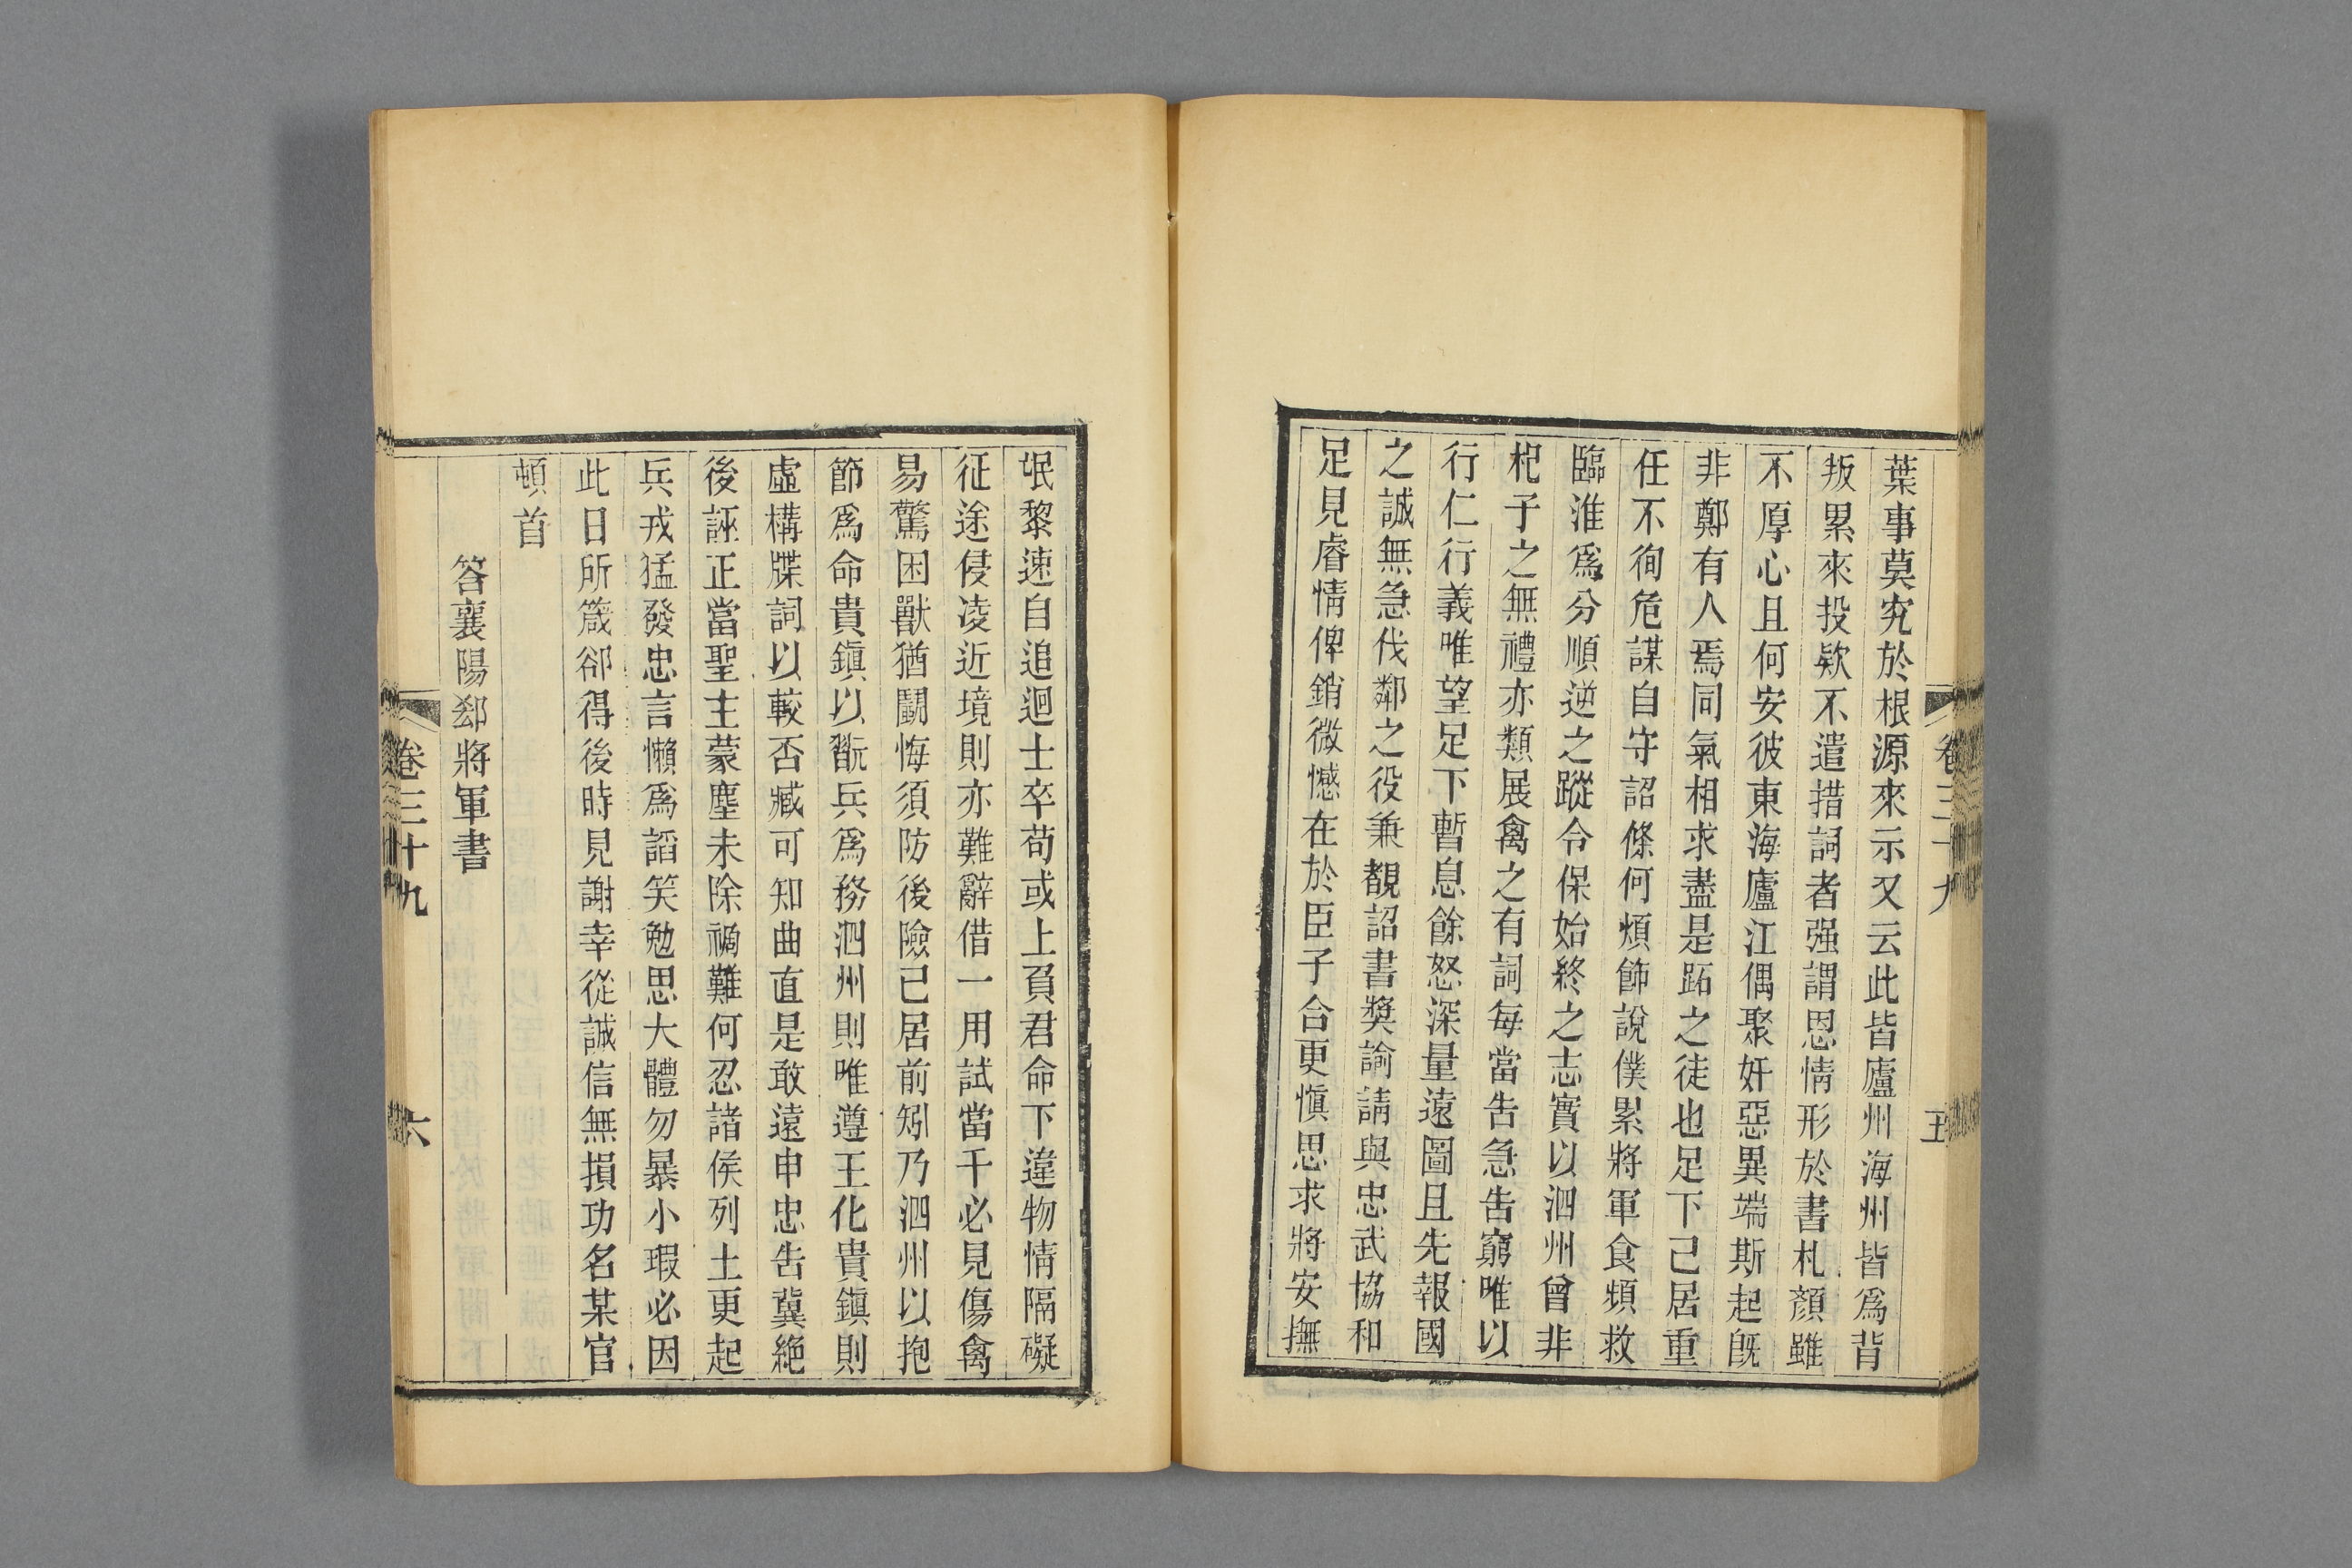 葉事莫究於根源來示又云此皆廬州海州皆爲背
叛累來投欵不遣措詞者强謂恩情形於書札顏雖
不厚心且何安彼東海廬江偶聚奸惡異端斯起旣
非鄭有人焉同氣相求盡是跖之徒也足下己居重
任不徇危謀自守詔條何煩飾說僕累將軍食頻救
臨淮爲分順逆之蹤令保始終之志實以泗州曾非
杞子之無禮亦類展禽之有詞每當告急告窮唯以
行仁行義唯望足下暫息餘怒深量遠圖且先報國
之誠無急伐鄰之役兼覩詔書奬諭請與忠武協和
足見睿情俾銷微憾在於臣子合更愼思求將安撫
卷三十九
五
氓黎速自追迴士卒苟或上負君命下違物情隔礙
征途侵凌近境則亦難辭借一用試當千必見傷禽
易驚困獸猶鬭悔須防後險已居前矧乃泗州以抱
節爲命貴鎭以翫兵爲務泗州則唯遵王化貴鎭則
虛構牒詞以較否臧可知曲直是敢遠申忠告冀絶
後誣正當聖主蒙塵未除禍難何忍諸侯列土更起
兵戎猛發忠言懶爲謟笑勉思大體勿暴小瑕必因
此日所箴卻得後時見謝幸從誠信無損功名某官
頓首
答襄陽郄將軍書
卷三十九
六